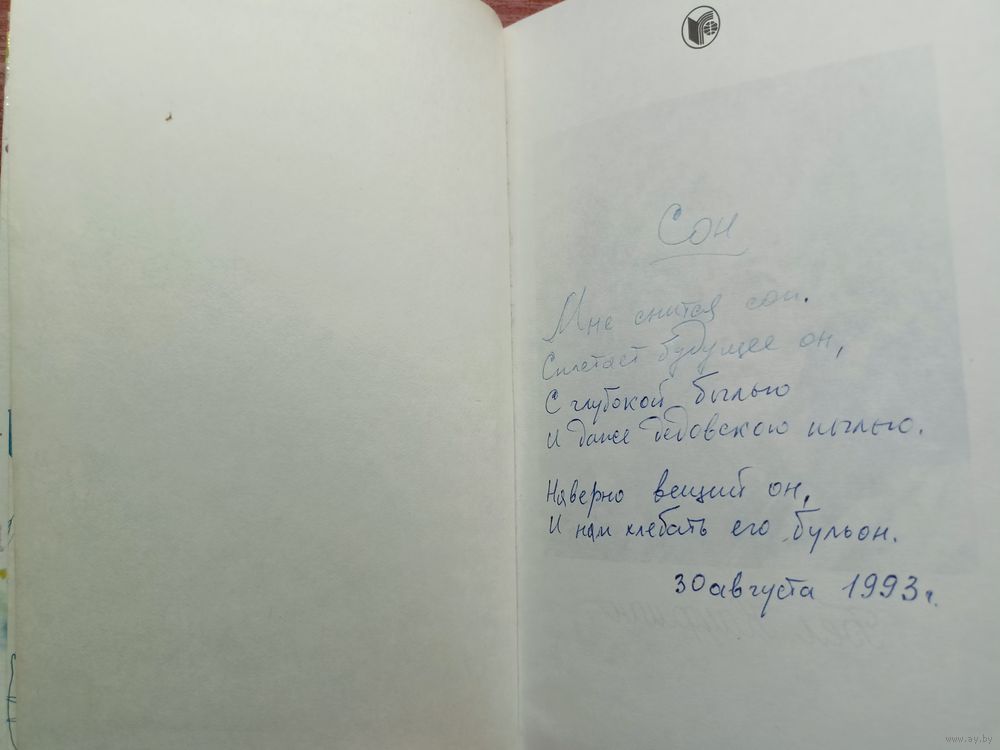 Сон
Мне снится сон.
Сплетает будущее он,
С глубокой былью
И даже дедовскою пылью.
Наверно вещий он,
И нам хлебать его бульон.
30 августа 1993 г.
www.ay.by